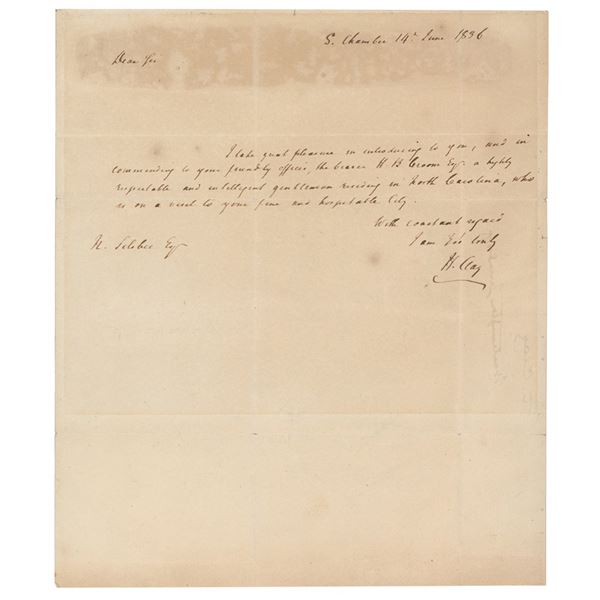 S. Chamber 14h June 1836
Dear Sir
I take great pleasure in introducing to you, and in
commending to your friendly offices, the bearer H B Croom Esqr. a highly
respectable and intelligent gentleman residing in North Carolina, who
is on a visit to your fine and hospitable City.
With constant regard
I am Yrs truly
H. Clay
N. Silsbee Esqr